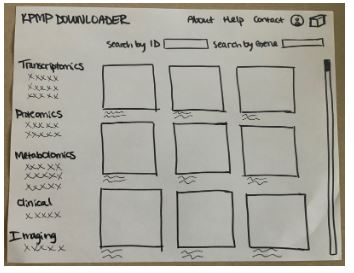 KPMP DOWNLOADER
About Help Contact
Search by ID
Search by Gene
Transcriptomics
xxxxx
xxxxx
xxxxx
Proteomics
xxxxx
xxxxx
Metabolomics
xxxxx
xxxxx
xxxxx
Clinical
xxxxx
Imaging
xxxxx